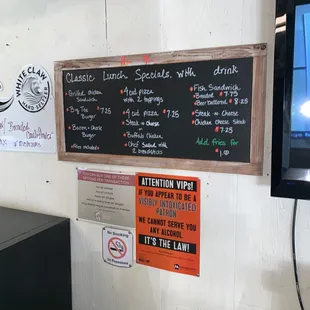 WHITE CLAW
HARD SELTZER
Classic Lunch Specials, with drink
Grilled Chicken
Sandwich
Big Joe
Burger
7.25
Bacon + Cheese
Burger
4 cut pizza
with 2 toppings
4 cut pizza 7.25
Steak or Cheese
Buffalo Chicken
Chef Salad with
2 breadsticks
Fish Sandwich
Breaded $7.75
Beer Battered 8.25
Steak or Cheese
Chicken Cheese Steak
7.25
Add fries for
$1.00
ATTENTION VIPs!
IF YOU APPEAR TO BE A
VISIBLY INTOXICATED
PATRON
WE CANNOT SERVE YOU
ANY ALCOHOL.
IT'S THE LAW!
No Smoking